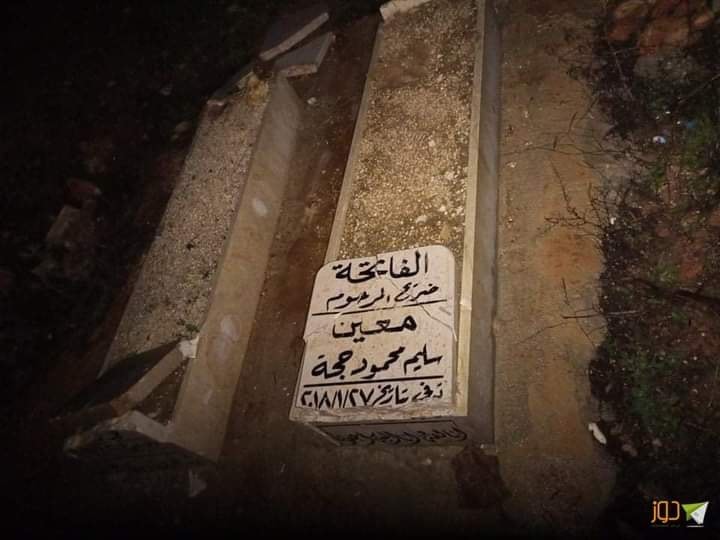 الفاتحة
ضريح المرحوم
معين
سليم محمود حجة
توفي تاريخ ٢٠١٨/١/٢٧
دوز